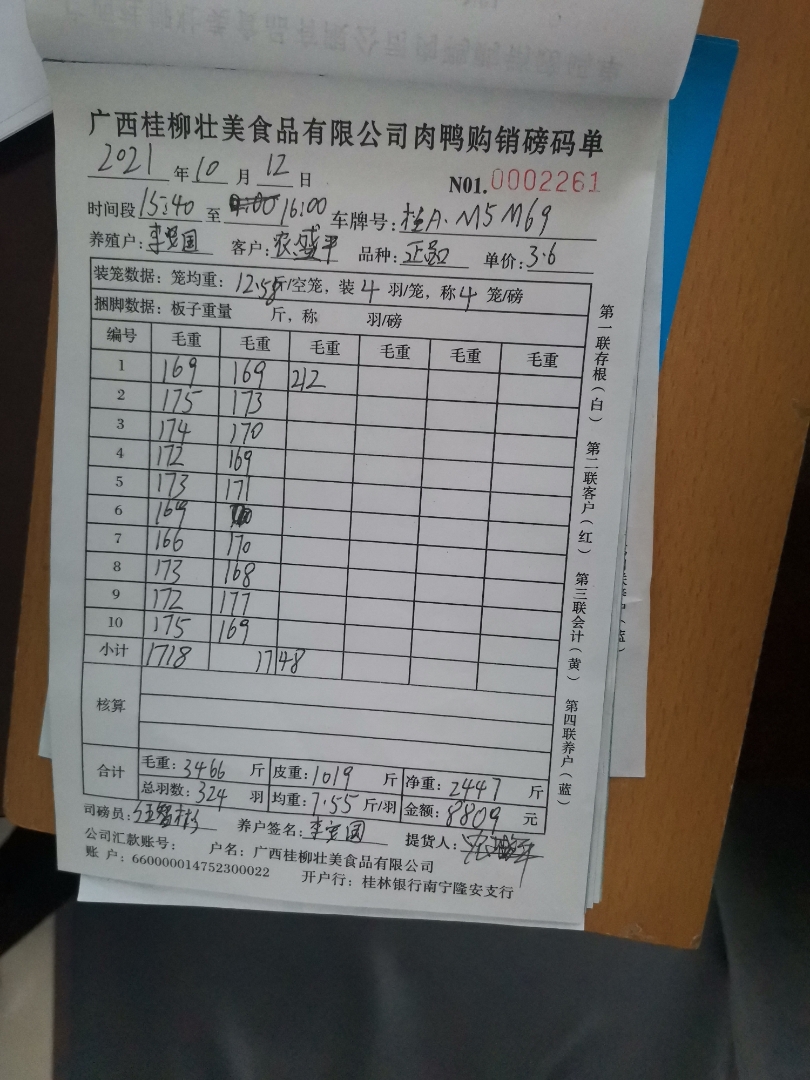 广西桂柳壮美食品有限公司肉鸭购销磅码单
2021 年 10 月 12 日 N01.0002261
时间段 15:40 至 16:00 车牌号: 桂A·M5M69
养殖户: 李 国 客户: 农盛平 品种: 正品 单价: 3.6
装笼数据: 笼均重: 12.58 斤/空笼, 装 4 羽/笼, 称 4 笼/磅
捆脚数据: 板子重量 斤, 称 羽/磅
编号 毛重 毛重 毛重 毛重 毛重 毛重
1 169 169 212
2 175 173
3 174 170
4 172 169
5 173 171
6 169
7 166 170
8 173 168
9 172 177
10 175 169
小计 1718 1748
核算
合计 毛重: 3466 斤 皮重: 1019 斤 净重: 2447 斤
总羽数: 324 羽 均重: 7.55 斤/羽 金额: 8809 元
司磅员: 养户签名: 李 国 提货人:
公司汇款账号: 户名: 广西桂柳壮美食品有限公司
账 户: 660000014752300022 开户行: 桂林银行南宁隆安支行
第一联存根(白) 第二联客户(红) 第三联会计(黄) 第四联养户(蓝)